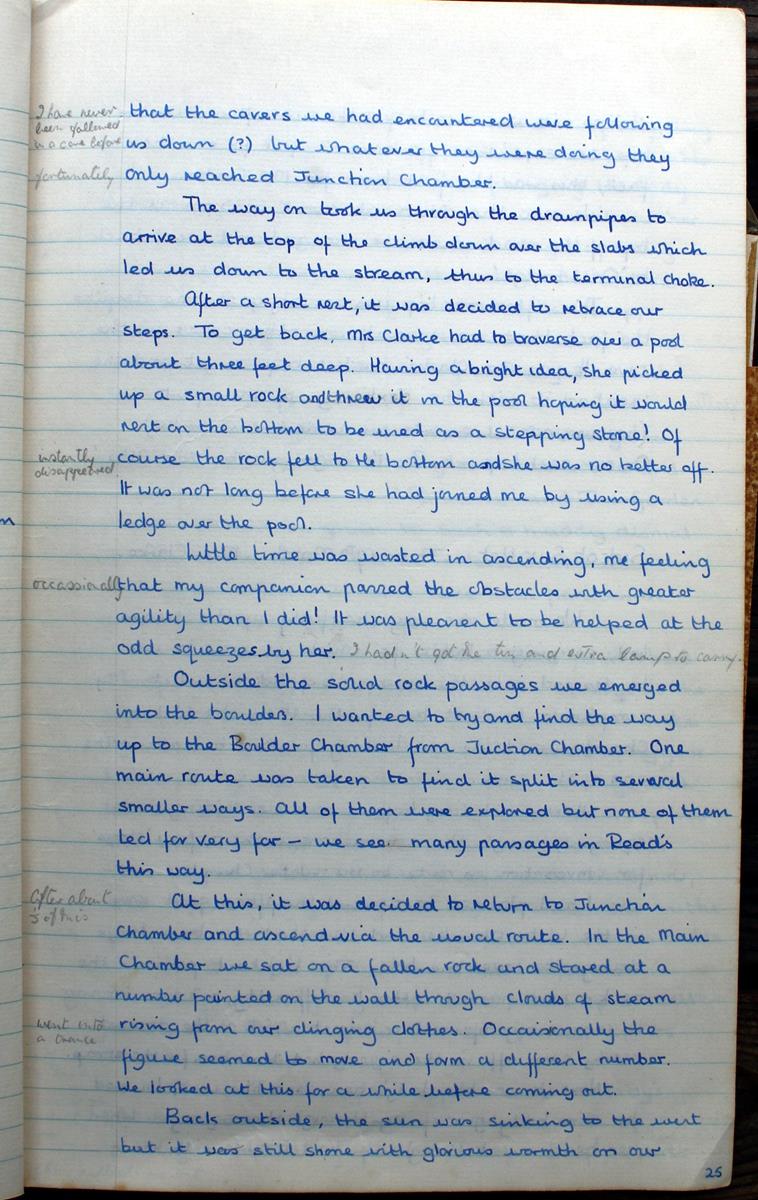 I have never
been followed
in a cave before
fortunately
that the cavers we had encountered were following
us down (?) but whatever they were doing they
only reached Junction Chamber.
The way on took us through the drainpipes to
arrive at the top of the climb down over the slabs which
led us down to the stream, thus to the terminal choke.
After a short rest, it was decided to retrace our
steps. To get back, Mrs Clarke had to traverse over a pool
about three feet deep. Having a bright idea, she picked
up a small rock and threw it in the pool hoping it would
rest on the bottom to be used as a stepping stone! Of
instantly
disappeared
course the rock fell to the bottom and she was no better off.
It was not long before she had joined me by using a
ledge over the pool.
Little time was wasted in ascending, me feeling
occassionally
that my companion passed the obstacles with greater
agility than I did! It was plesent to be helped at the
odd squeezes by her. I hadn't got the tin and extra lamp to carry.
Outside the solid rock passages we emerged
into the boulders. I wanted to try and find the way
up to the Boulder Chamber from Juction Chamber. One
main route was taken to find it split into several
smaller ways. All of them were explored but none of them
led for very far – we see many passages in Read's
this way.
After about
5 of this
At this, it was decided to return to Junction
Chamber and ascend via the usual route. In the Main
Chamber we sat on a fallen rock and stared at a
number painted on the wall through clouds of steam
went into
a trance
rising from our clinging clothes. Occaisonally the
figure seemed to move and form a different number.
We looked at this for a while before coming out.
Back outside, the sun was sinking to the west
but it was still shone with glorious warmth on our
25